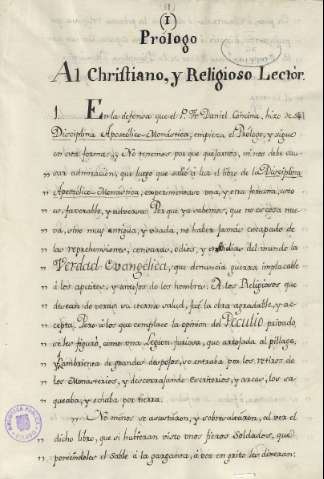 1
Prólogo
Al Christiano, y Religioso Lector.
1. En la defensa que el P. Fr. Daniel Concina, hizo de su
Disciplina Apostólico-Monástica, empieza el Prólogo, y sigue
en esta forma: No tenemos por que quejarnos, ni nos debe cau-
sar admiracion, que luego que salió a luz el libro de la Disciplina
Apostolico-Monastica, experimentase una, y otra fortuna, uno
favorable, y adversa. Por que ya sabemos, que no es cosa nue-
va, sino muy antigua, y usada, no haber jamás escapado de
las reprehensiones, censuras, odios, y embidias del mundo la
Verdad Evangélica, que denuncia guerra implacable
á los apetitos, y antojos de los hombres. A los Religiosos que
desean de veras su eterna salud, fué la obra agradable, y ac-
cepta. Pero á los que complace la opinion del Peculio privado,
se les figuró, como una Legion furiosa, que arrojada al pillage,
y hambrienta de grandes despojos, se entraba por los retiros de
los Monasterios, y descerrajando Escritorios, y arcas, los sa-
queaba, y echaba por tierra.
No menos se asustaron, y sobresaltaron, al ver el
dicho libro, que si hubieran visto unos fieros Soldados, que
poniendoles el sable á la garganta, á voz en grito les dixeran: